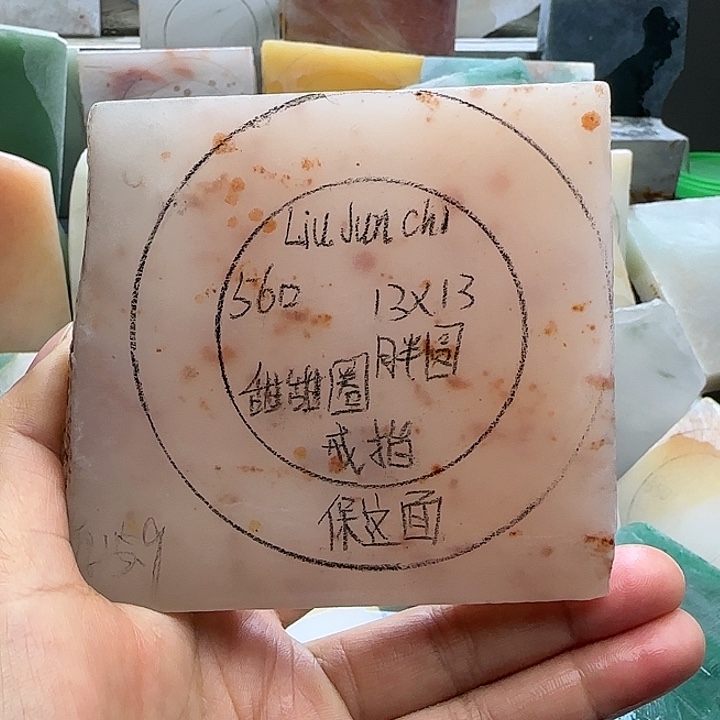 Liu Jun chi
560 13x13
甜甜圈 胖圆
戒指
保这面